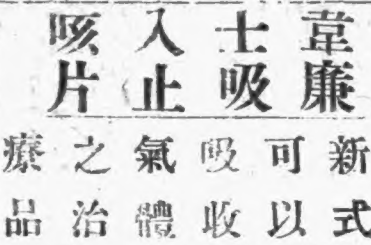 韋廉士吸入止咳片
新式可以吸收氣體之治療品